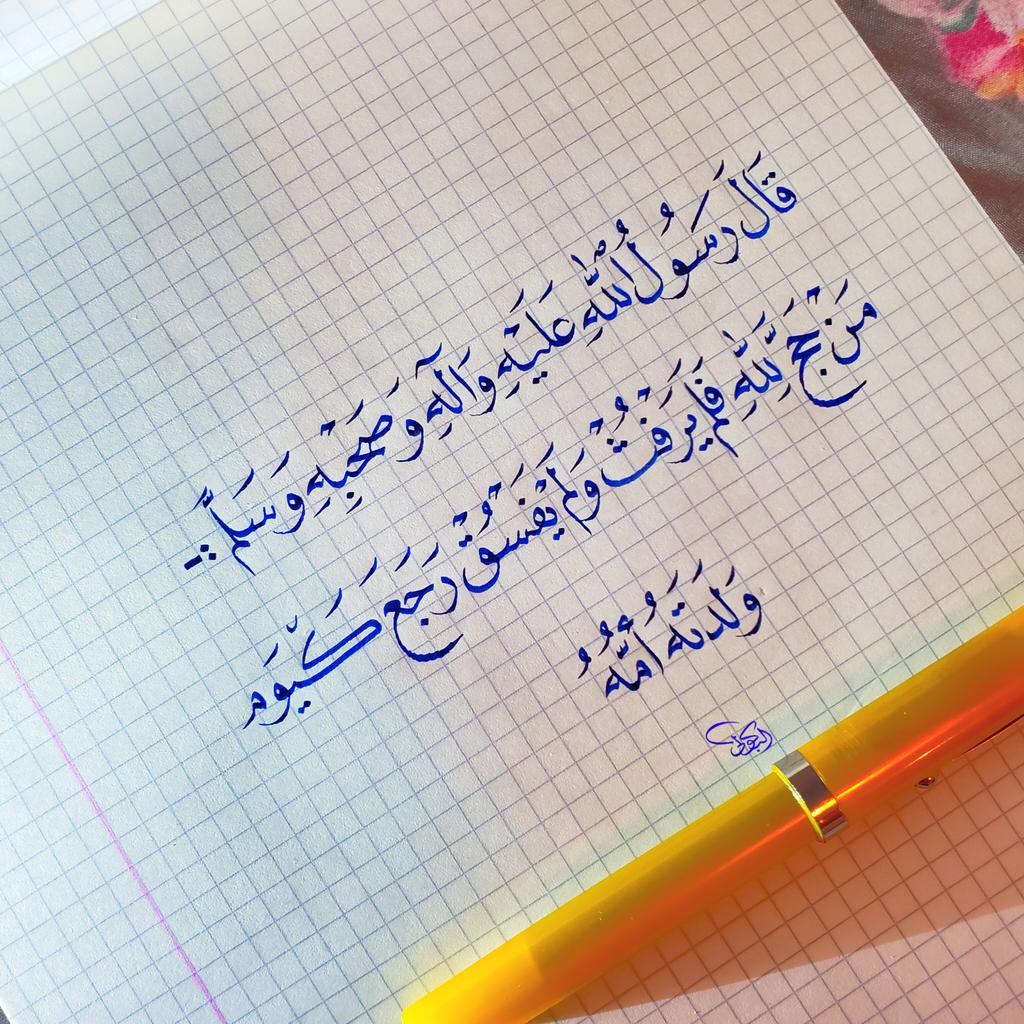 قَالَ رَسُولُ اللَّهِ عَلَيْهِ وَآلِهِ وَصَحْبِهِ وَسَلَّمَ :-
مَنْ حَجَّ لِلَّهِ فَلَمْ يَرْفُثْ وَلَمْ يَفْسُقْ رَجَعَ كَيَوْمَ
وَلَدَتْهُ أُمُّهُ